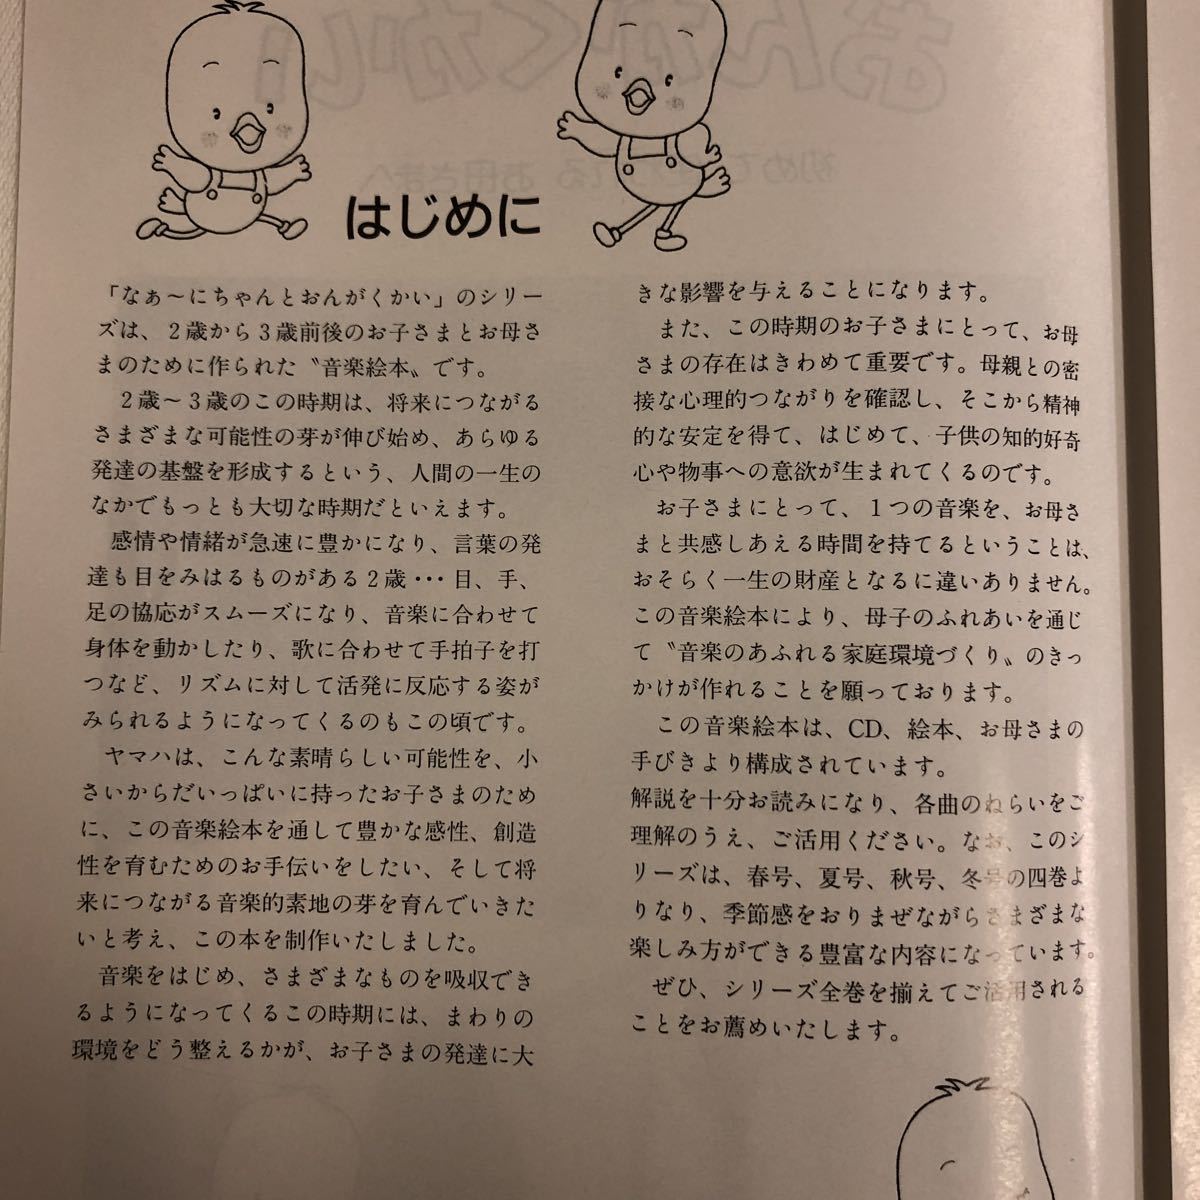 はじめに
「なぁ〜にちゃんとおんがくかい」のシリー
ズは、2歳から3歳前後のお子さまとお母さ
まのために作られた〝音楽絵本〟です。
2歳〜3歳のこの時期は、将来につながる
さまざまな可能性の芽が伸び始め、あらゆる
発達の基盤を形成するという、人間の一生の
なかでもっとも大切な時期だといえます。
感情や情緒が急速に豊かになり、言葉の発
達も目をみはるものがある2歳･･･目、手、
足の協応がスムーズになり、音楽に合わせて
身体を動かしたり、歌に合わせて手拍子を打
つなど、リズムに対して活発に反応する姿が
みられるようになってくるのもこの頃です。
ヤマハは、こんな素晴らしい可能性を、小
さいからだいっぱいに持ったお子さまのため
に、この音楽絵本を通して豊かな感性、創造
性を育むためのお手伝いをしたい、そして将
来につながる音楽的素地の芽を育んでいきた
いと考え、この本を制作いたしました。
音楽をはじめ、さまざまなものを吸収でき
るようになってくるこの時期には、まわりの
環境をどう整えるかが、お子さまの発達に大
きな影響を与えることになります。
また、この時期のお子さまにとって、お母
さまの存在はきわめて重要です。母親との密
接な心理的つながりを確認し、そこから精神
的な安定を得て、はじめて、子供の知的好奇
心や物事への意欲が生まれてくるのです。
お子さまにとって、1つの音楽を、お母さ
まと共感しあえる時間を持てるということは、
おそらく一生の財産となるに違いありません。
この音楽絵本により、母子のふれあいを通じ
て〝音楽のあふれる家庭環境づくり〟のきっ
かけが作れることを願っております。
この音楽絵本は、CD、絵本、お母さまの
手びきより構成されています。
解説を十分お読みになり、各曲のねらいをご
理解のうえ、ご活用ください。なお、このシ
リーズは、春号、夏号、秋号、冬号の四巻よ
りなり、季節感をおりまぜながらさまざまな
楽しみ方ができる豊富な内容になっています。
ぜひ、シリーズ全巻を揃えてご活用される
ことをお薦めいたします。